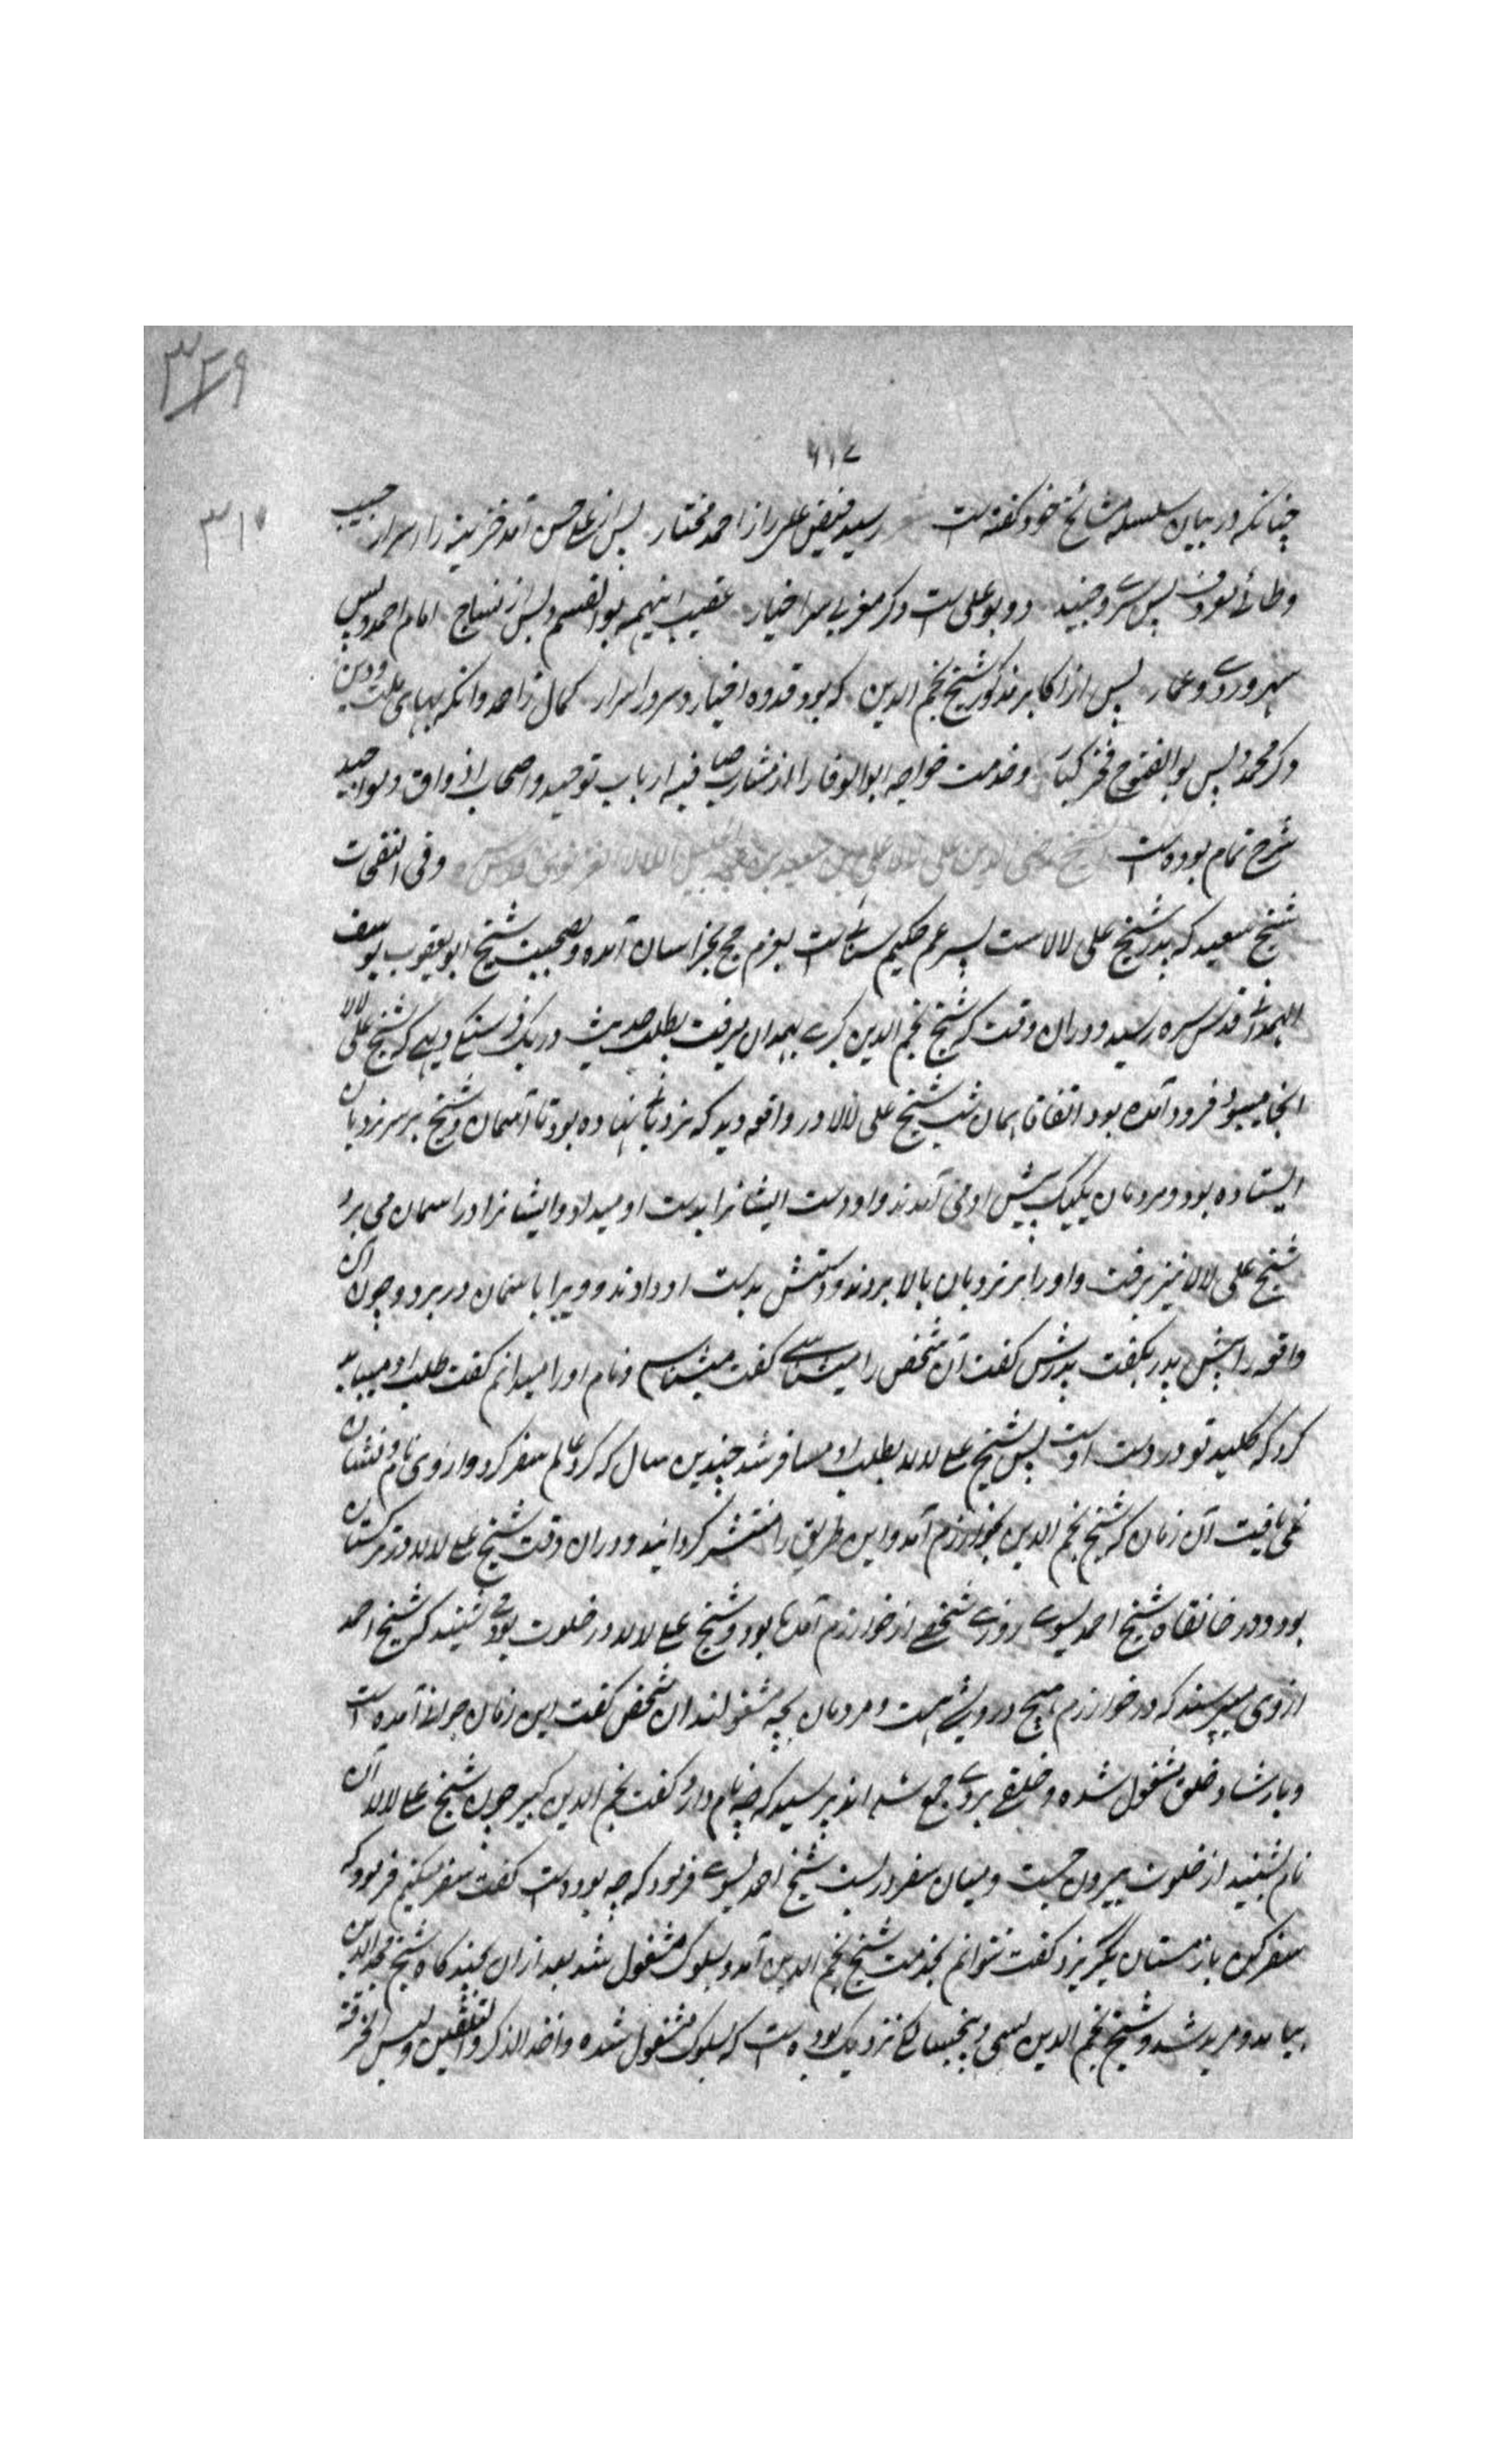 ۳۲۹
۶۱۷
۳۱۷
چنانکه در بیان سلسله مشائخ خود کفته است شعر رسید فیض علی را از احمد مختار پس از علی حسن آمد خزینه را اسرار حبیب
و طائی معروف پس سری و جنید دو بو علی است دکر مغربی سر اخیار عقیب اینهمه بو القسم و پس از نساج امام احمد و پس
سهروردی و عمار پس از اکابر مذکور شیخ نجم الدین که بود قدوه اخیار و سرور ابرار کمال زاحمد وانکه بهای ملت و دین
دکر محمد و پس بو الفتوح فخر کبار و خدمت خواجه ابو الوفا را از مشارب صافیه ارباب توحید و اصحاب اذواق و مواجید
شرح تمام بوده است شیخ رضی الدین علی لالا علی بن سعید بن عبد الجلیل اللالا الغزنوی قدس سره وفی النفحات
شیخ سعید که پدر شیخ علی لالاست پسر عم حکیم سنائی است بعزم حج بخراسان آمده و بصحبت شیخ ابو یعقوب یوسف
الهمدانی قدس سره رسید و دران وقت که شیخ نجم الدین کبری بهمدان میرفت بطلب حدیث در یک فرسنکی دیهی که شیخ علی لالا
انجا میبود فرود آمده بود اتفاقا همان شب شیخ علی لالا در واقعه دید که نردبانی نهاده بود تا آسمان و شیخ بر سر نردبان
ایستاده بود و مردمان یکیک پیش او می آمدند و او دست ایشانرا بدست او میداد و ایشانرا در اسمان می برد
شیخ علی لالا نیز برفت و او را بر نردبان بالا بردند و دستش بدست او دادند و ویرا باسمان در برد و چون آن
واقعه را پیش پدر بکفت پدرش کفت آن شخص را میشناسی کفت میشناسم و نام او را میدانم کفت طلب او میباید
کرد که کلید تو در دست اوست پس شیخ علی لالا بطلب او مسافر شد چندین سال که کرد عالم سفر کرد و از وی نام و نشان
نمی یافت آن زمان که شیخ نجم الدین بخوارزم آمد و این طریق را منتشر کردانید و دران وقت شیخ علی لالا در ترکستان
بود و در خانقاه شیخ احمد یسوی روزی شخصی از خوارزم آمده بود و شیخ علی لالا در خلوت بود می شنید که شیخ احمد
از وی میپرسد که در خوارزم هیچ درویشی هست و مردمان بچه مشغولند ان شخص کفت این زمان جوانی آمده است
و بارشاد خلق مشغول شده و خلقی بروی جمع شده اند پرسید که چه نام دارد کفت نجم الدین کبیر چون شیخ علی لالا آن
نام بشنید از خلوت بیرون جست و میان سفر در بست شیخ احمد یسوی فرمود که چه بوده است کفت سفر میکنم فرمود که
سفر کن باز زمستان بکریزد کفت نتوانم بخدمت شیخ نجم الدین آمد و بسلوک مشغول شد بعد از ان بچند کاه شیخ مجد الدین
بیامد و مرید شد و شیخ نجم الدین بسی و پنجسالکی نزدیک بوده است که بسلوک مشغول شده و اخذ الذکر و التلقین و لبس الخرقة